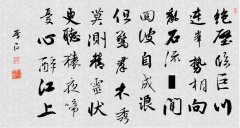 絕壁臨巨川
連峯勢相向
亂石流間
回波自成浪
但驚群木秀
莫測精靈狀
更聽猿夜啼
憂心醉江上